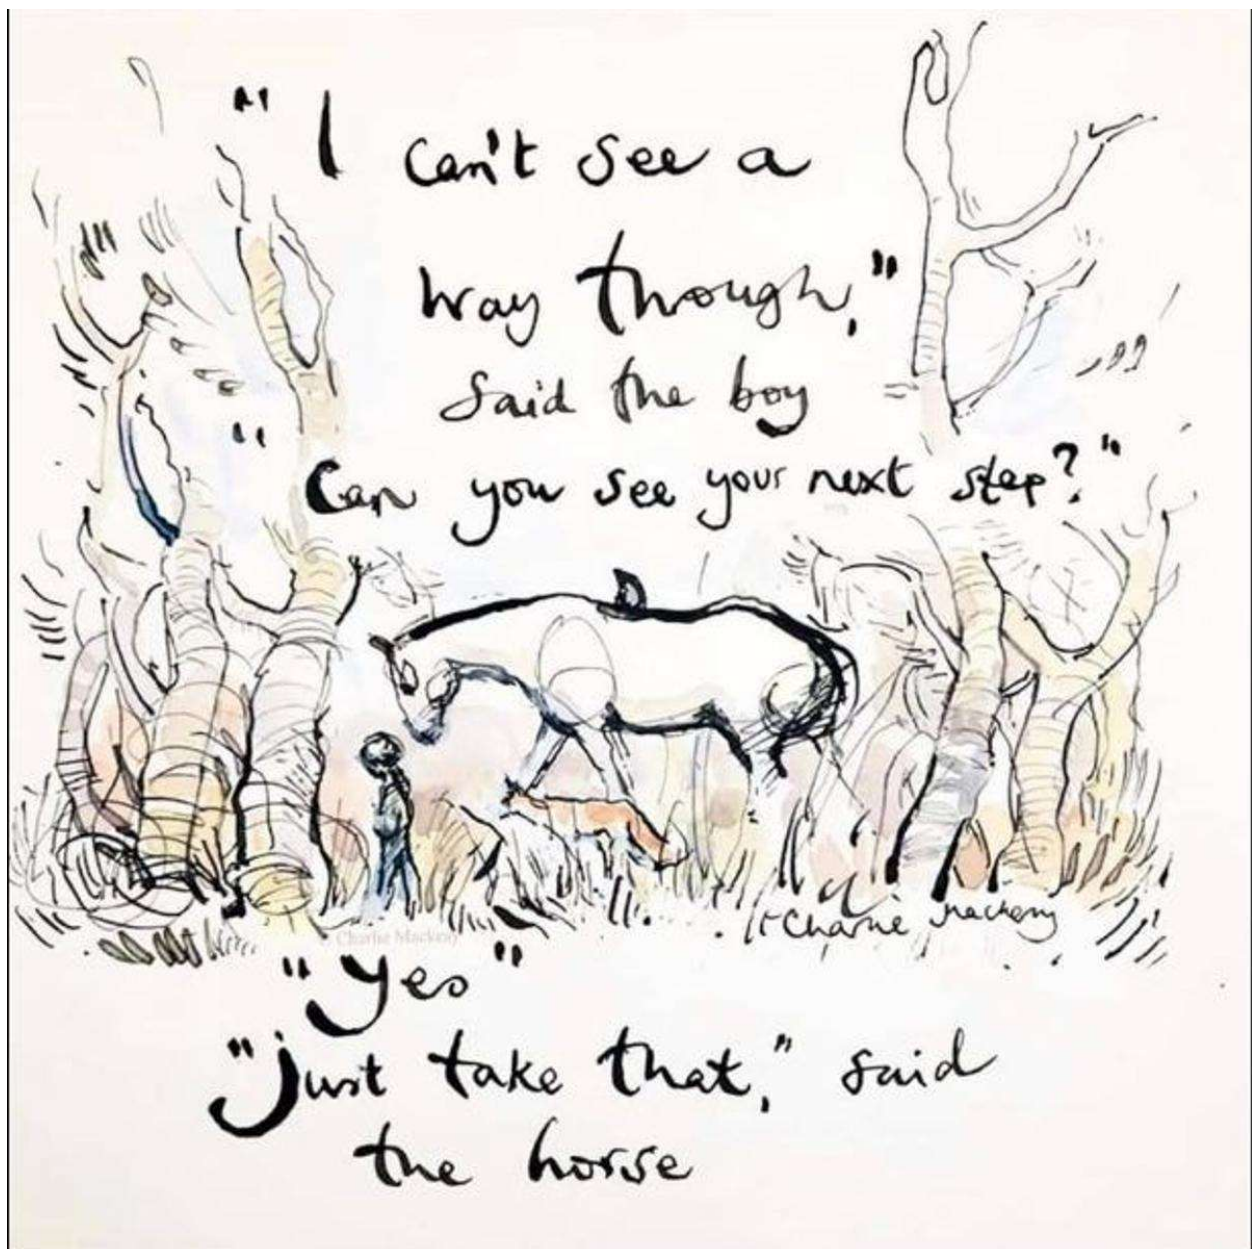 "I can't see a
way though,"
said the boy
"Can you see your next step?"
Charlie Mackesy
© Charlie Mackesy
"Yes"
"just take that," said
the horse